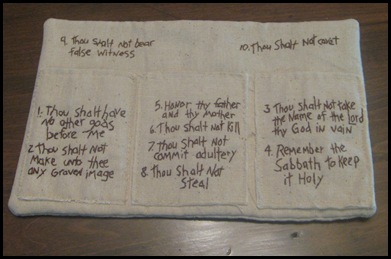 9. Thou Shalt not bear
false witness
10. Thou Shalt Not covet
1. Thou Shalt have
no other gods
before Me
2. Thou Shalt Not
Make unto thee
any Graven image
5. Honor thy father
and thy Mother
6. Thou Shalt Not Kill
7. Thou Shalt Not
commit adultery
8. Thou Shalt Not
Steal
3. Thou Shalt Not take
the Name of the Lord
thy God in vain
4. Remember the
Sabbath to Keep
it Holy